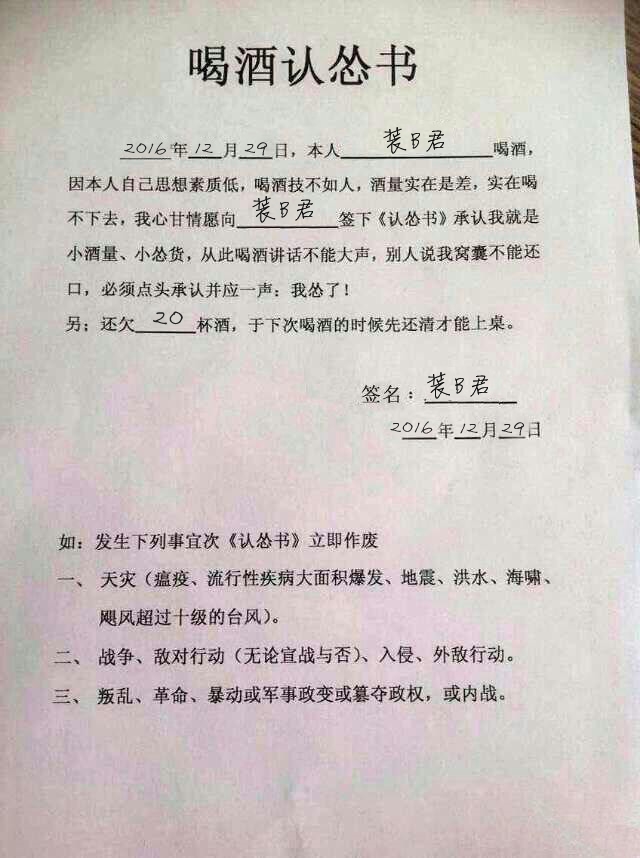 喝酒认怂书
2016年12月29日，本人装B君喝酒，
因本人自己思想素质低，喝酒技不如人，酒量实在是差，实在喝
不下去，我心甘情愿向装B君签下《认怂书》承认我就是
小酒量、小怂货，从此喝酒讲话不能大声，别人说我窝囊不能还
口，必须点头承认并应一声：我怂了！
另；还欠20杯酒，于下次喝酒的时候先还清才能上桌。
签名：装B君
2016年12月29日
如：发生下列事宜次《认怂书》立即作废
一、天灾（瘟疫、流行性疾病大面积爆发、地震、洪水、海啸、
飓风超过十级的台风）。
二、战争、敌对行动（无论宣战与否）、入侵、外敌行动。
三、叛乱、革命、暴动或军事政变或篡夺政权，或内战。